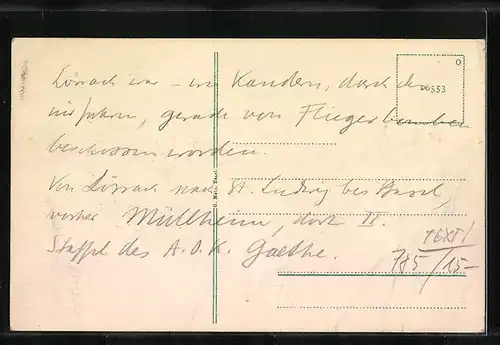 Lörrach war – wie Kandern, durch das
wir fuhren, gerade von Fliegerbomben
beschossen worden.
Von Lörrach nach St. Ludwig bei Basel,
vorher Müllheim, dort II.
Staffel des A.O.K. Gaethe.
O
06553
TEXT!
785/15-